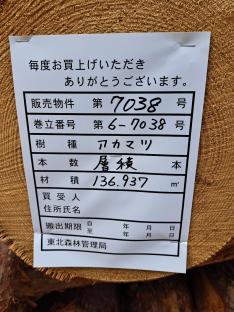 毎度お買上げいただき
ありがとうございます。
販売物件 第 7038 号
巻立番号 第 6-7038 号
樹種 アカマツ
本数 層積 本
材積 136.937 ㎥
買受人
住所氏名
搬出期限 自 年 月 日
至 年 月 日
東北森林管理局